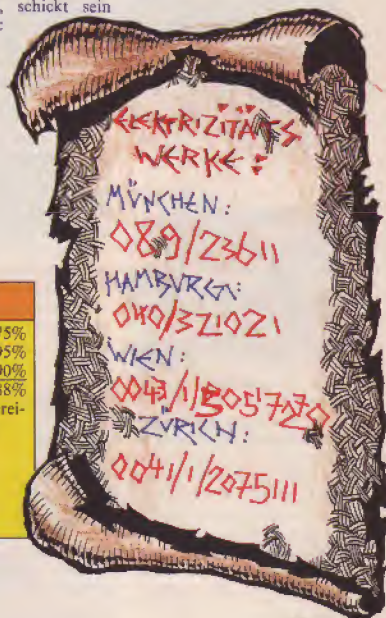 , schickt sein
:
75%
95%
90%
88%
rei-
ELEKTRIZITÄTS
WERKE:
MÜNCHEN:
089/23611
HAMBURG:
040/321021
WIEN:
0043/1/5057720
ZÜRICH:
0041/1/2075111